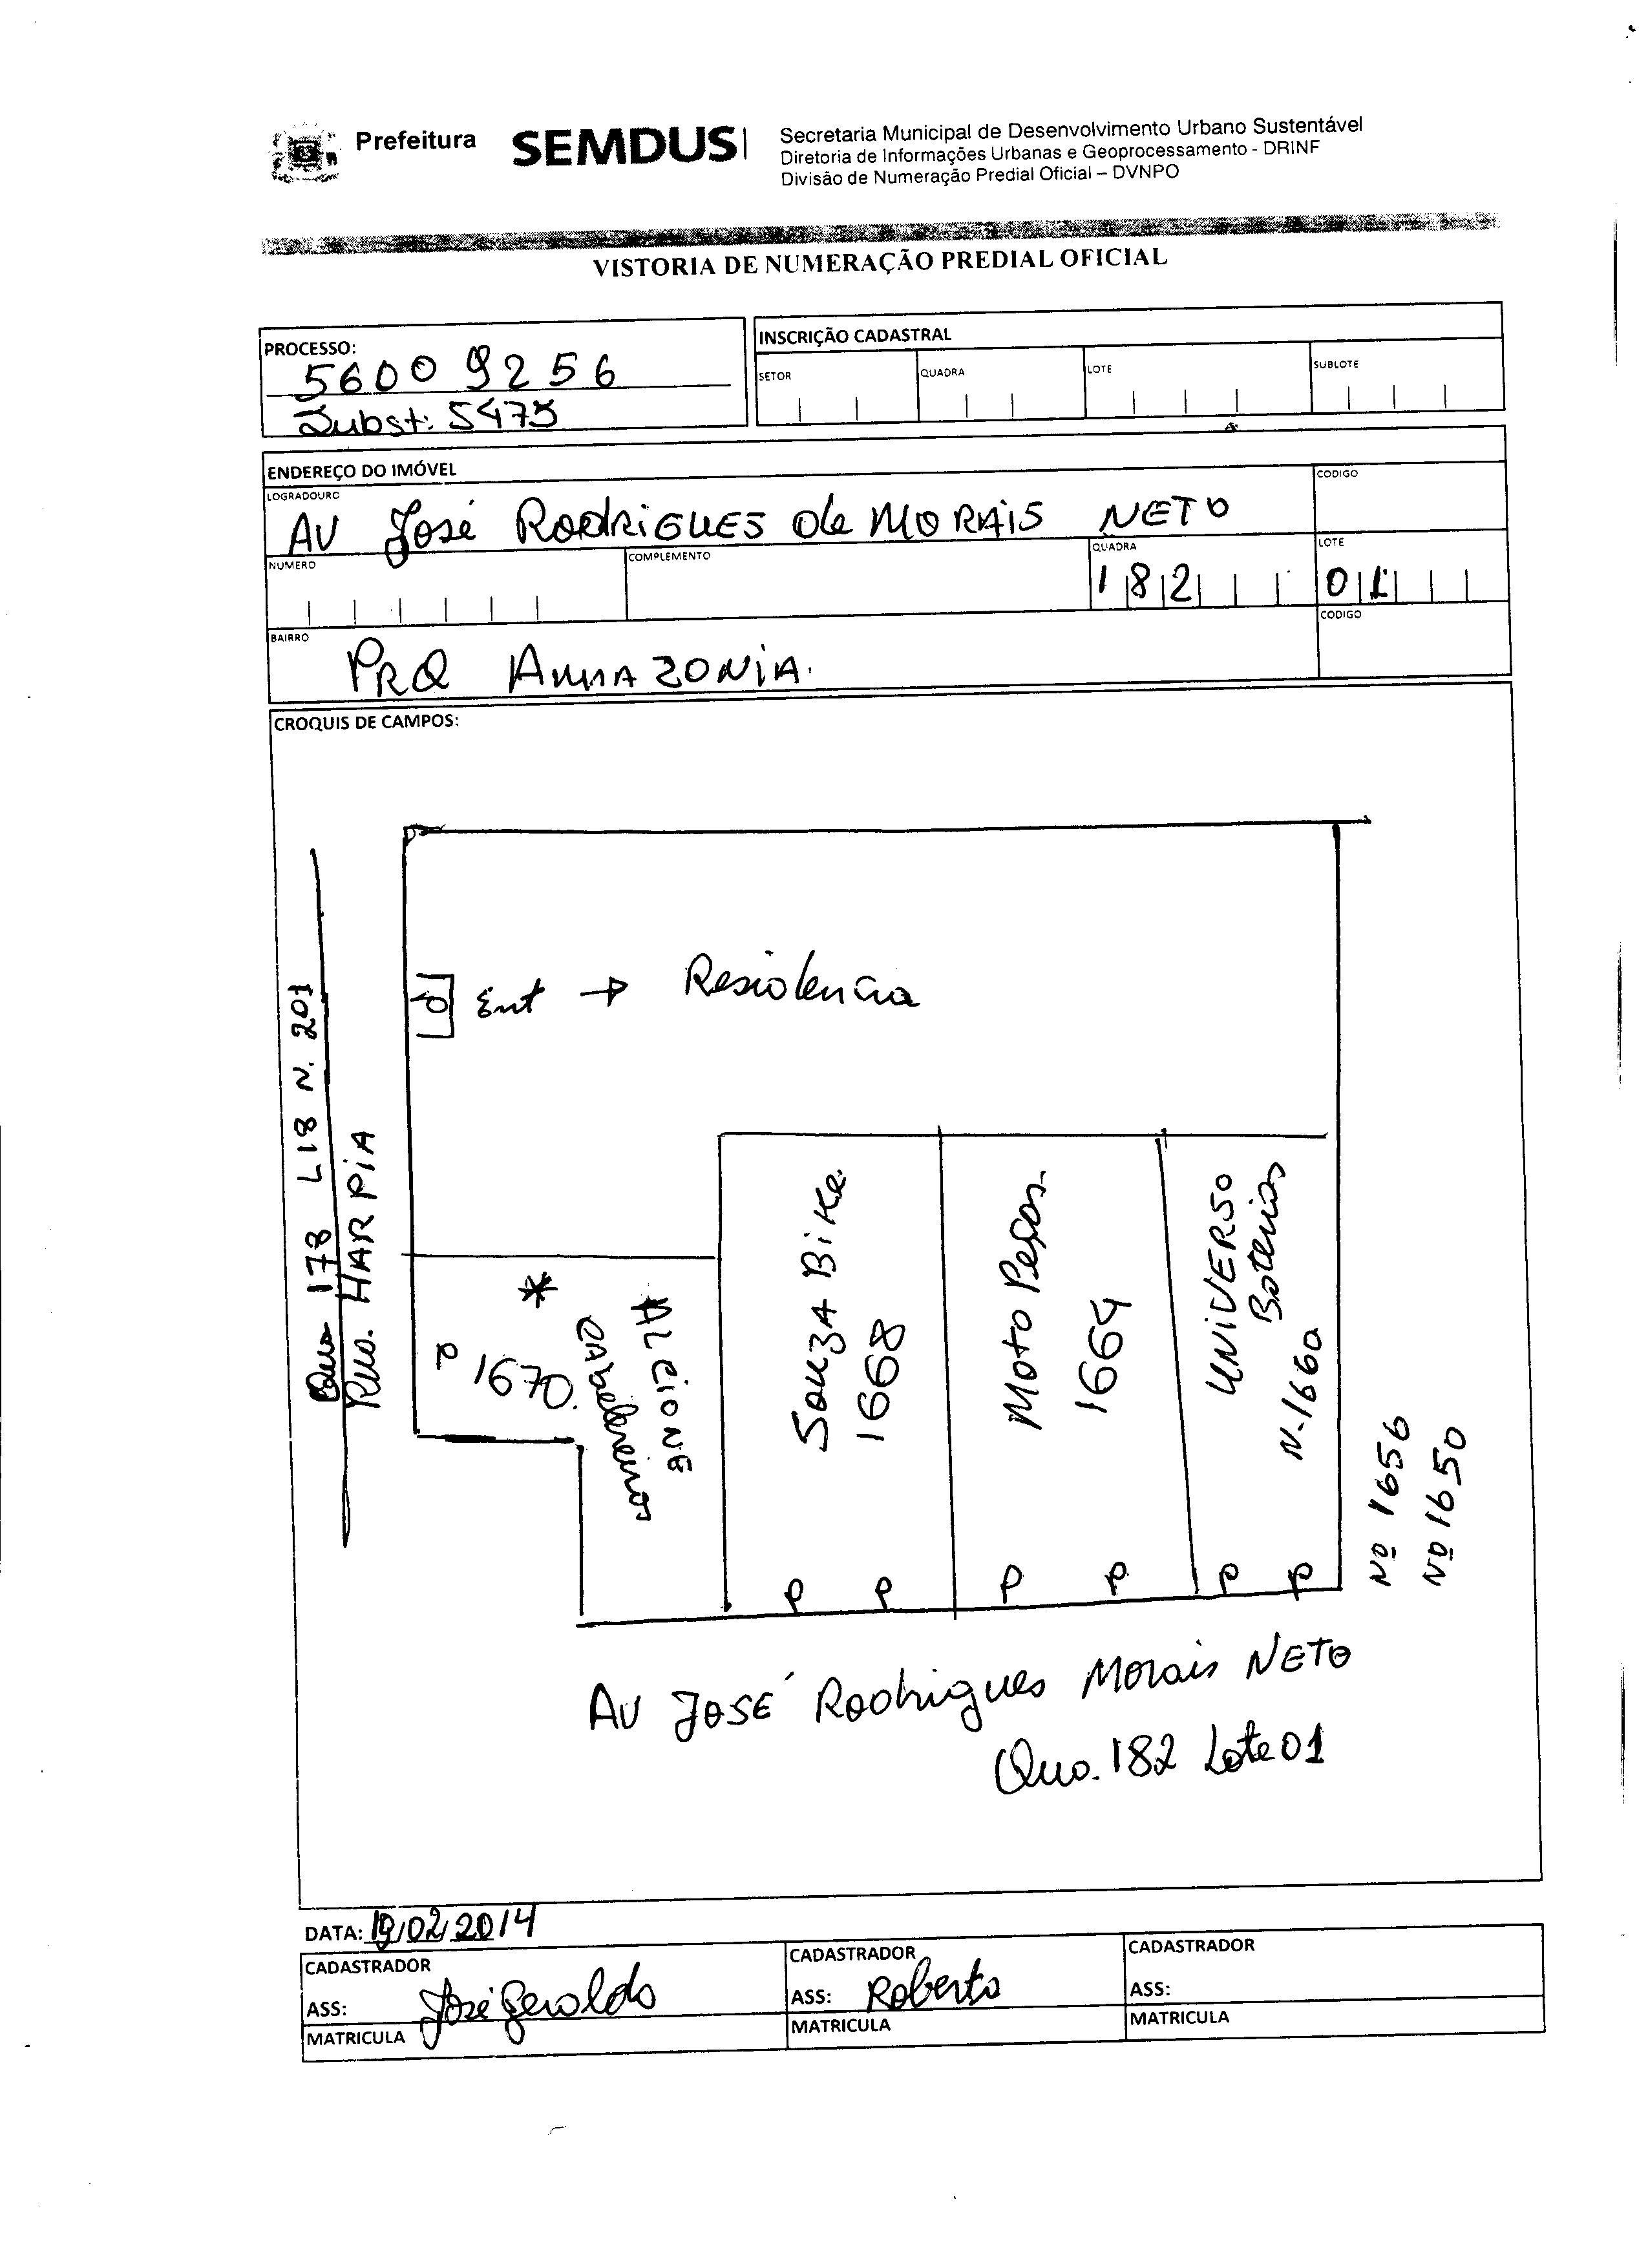 Prefeitura SEMDUS
Secretaria Municipal de Desenvolvimento Urbano Sustentável
Diretoria de Informações Urbanas e Geoprocessamento - DRINF
Divisão de Numeração Predial Oficial – DVNPO
VISTORIA DE NUMERAÇÃO PREDIAL OFICIAL
PROCESSO:
5600 9256
Subst: 5475
INSCRIÇÃO CADASTRAL
SETOR QUADRA LOTE SUBLOTE
ENDEREÇO DO IMÓVEL
LOGRADOURO CODIGO
AV José RodRiGUES de MORAiS NETO
NUMERO COMPLEMENTO QUADRA LOTE
182 01
BAIRRO CODIGO
PRQ AmAZONiA.
CROQUIS DE CAMPOS:
Qua 178 L18 N. 201
Rua. HARPiA
Ent → Residencia
* P 1670.
ALCIONE
cabeleireiros
SouzA BiKe.
1668
Moto Peças.
1664
UNiVERSO
Baterias
N-1660
Nº 1656
Nº 1650
P P P P P P
AV JOSÉ Rodrigues Morais NETO
Qua. 182 Lote 01
DATA: 19/02/2014
CADASTRADOR CADASTRADOR CADASTRADOR
ASS: José Geraldo ASS: Roberto ASS:
MATRICULA MATRICULA MATRICULA